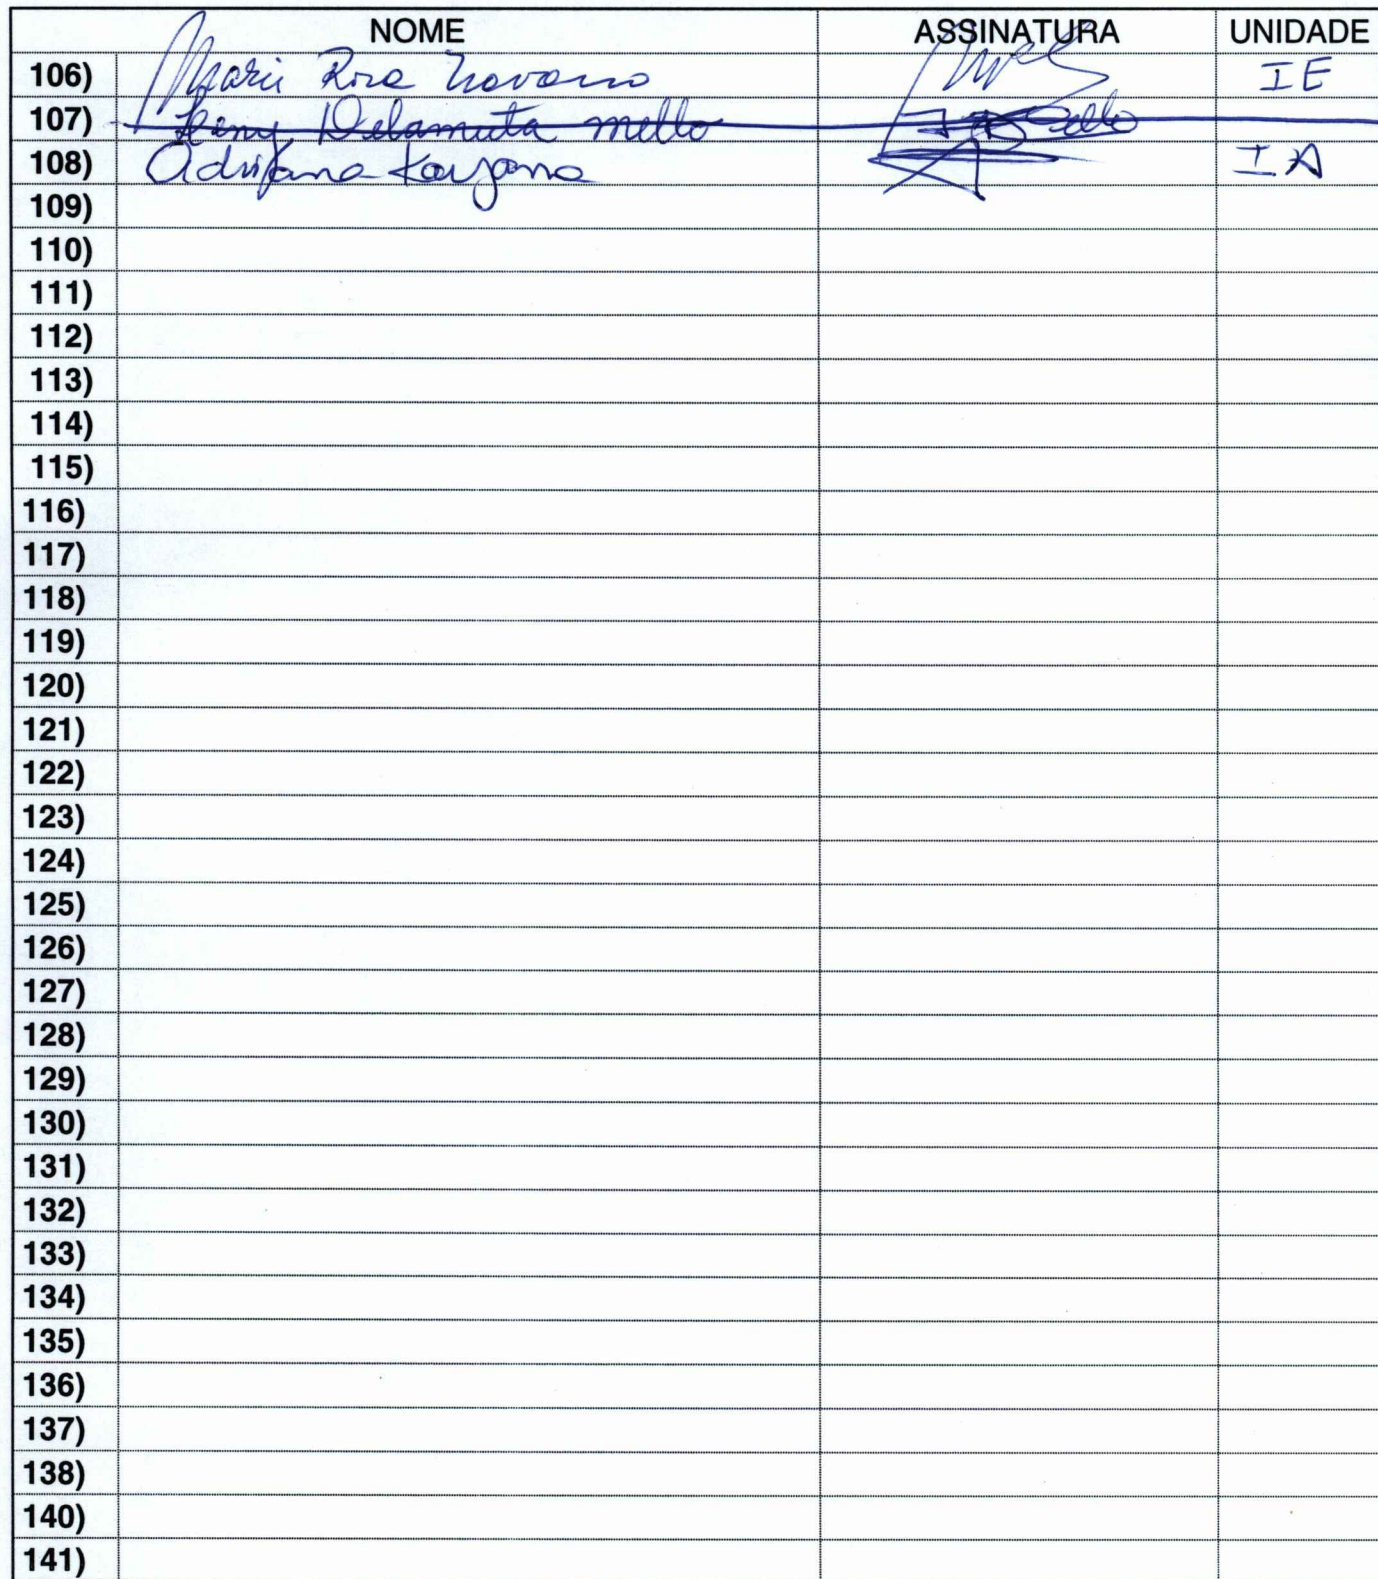 NOME ASSINATURA UNIDADE
106) Maria Rosa Navarro IE
107) Delamuta Mello
108) Adriana Kayama IA
109)
110)
111)
112)
113)
114)
115)
116)
117)
118)
119)
120)
121)
122)
123)
124)
125)
126)
127)
128)
129)
130)
131)
132)
133)
134)
135)
136)
137)
138)
140)
141)